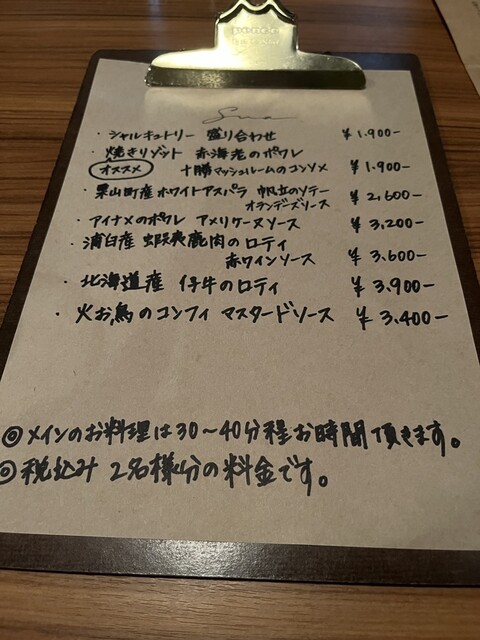 ・シャルキュトリー 盛り合わせ ¥1.900-
・焼きリゾット 赤海老のポワレ
オススメ 十勝マッシュルームのコンソメ ¥1.900-
・栗山町産ホワイトアスパラ 帆立のソテー ¥2,600-
オランデーズソース
・アイナメのポワレ アメリケーヌソース ¥3,200-
・浦臼産 蝦夷鹿肉のロティ
赤ワインソース ¥3.600-
・北海道産 仔牛のロティ ¥3.900-
・火お鳥のコンフィ マスタードソース ¥3.400-
◎メインのお料理は30～40分程お時間頂きます。
◎税込み 2名様分の料金です。